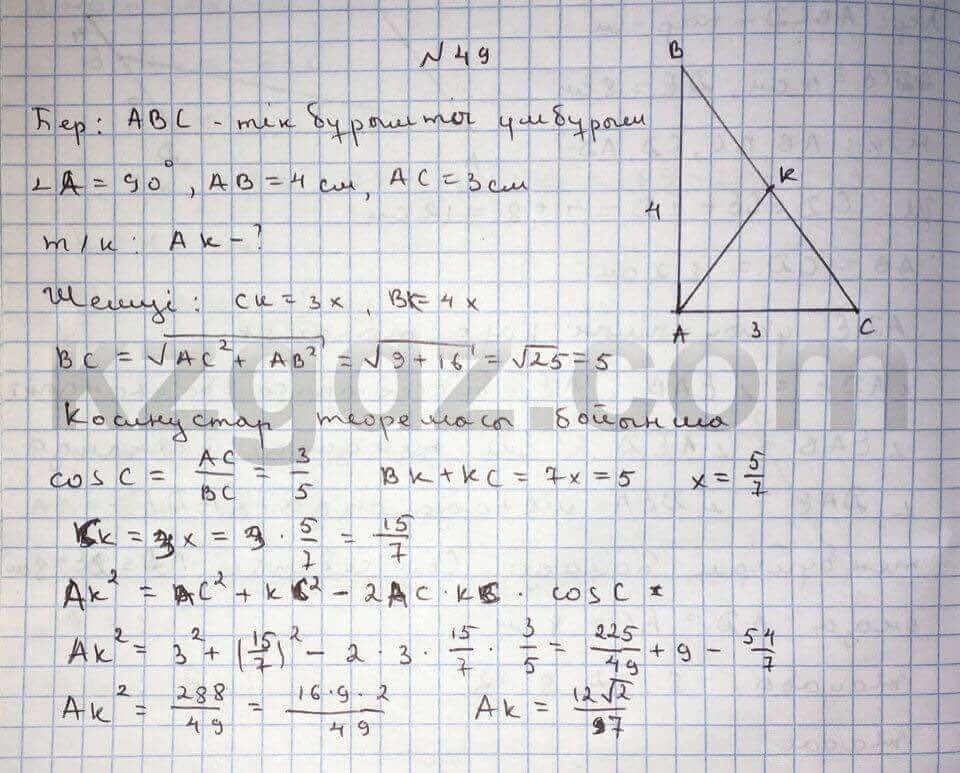 № 49
Бер: ABC - тік бұрышты үшбұрыш
∠A = 90°, AB = 4 см, AC = 3 см
т/к: AK - ?
Шешуі: CK = 3x, BK = 4x
BC = √(AC² + AB²) = √(9 + 16) = √25 = 5
Косинустар теоремасы бойынша
cos C = AC/BC = 3/5 BK + KC = 7x = 5 x = 5/7
CK = 3x = 3 · 5/7 = 15/7
AK² = AC² + KC² - 2AC · KC · cos C =
AK² = 3² + (15/7)² - 2 · 3 · 15/7 · 3/5 = 225/49 + 9 - 54/7
AK² = 288/49 = 16·9·2/49 AK = 12√2/7
B
K
4
A
3
C
kzgdz.com